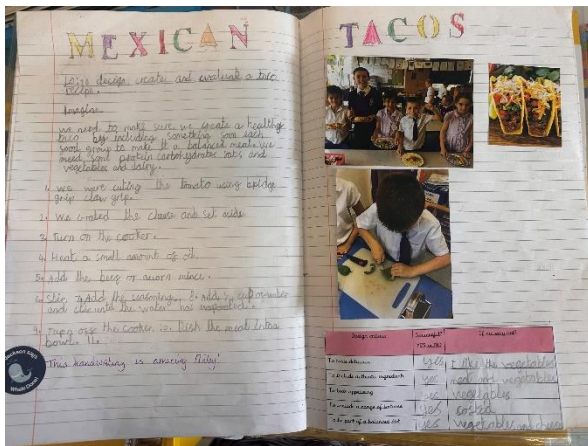 MEXICAN TACOS
LO: to design, create and evaluate a taco
recipe.
Imagine
we need to make sure we create a healthy
taco by including something from each
food group to make it a balanced meal. we
need some protein carbohydrates fats and
vegetables and dairy.
1. We were cutting the tomato using bridge
grip claw grip.
2. We grated the cheese and set aside
3. Turn on the cooker.
4. Heat a small amount of oil.
5. Add the beef or quorn mince.
6. Stir, 7. Add the seasoning, 8. Add ½ cup of water
and the water has evaporated.
9. Turn off the cooker. 10. Dish the meat into a
bowl. 11.
This handwriting is amazing
Whale Done!
Design criteria
Successful?
YES or NO
If no why not?
To taste delicious
yes
I like the vegetables
To include authentic ingredients
yes
meat and vegetables
To look appealing
yes
vegetables
To include a range of textures
yes
To be part of a balanced diet
yes
vegetables and cheese